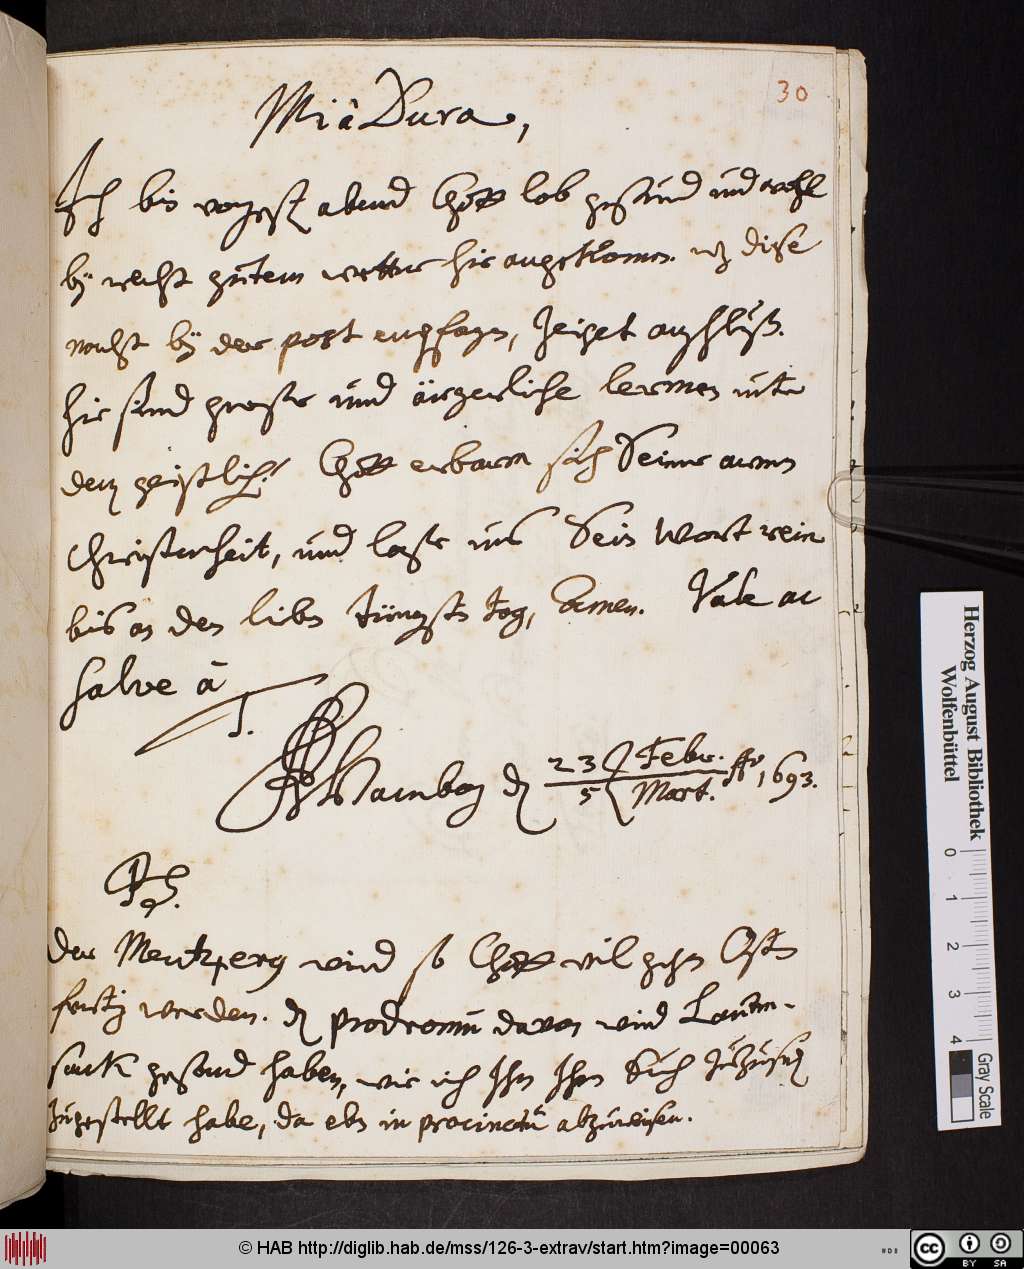 30
Mia Dura,
Ich bin vorgest. abend Gott lob gesund und wohl
bÿ recht gutem wetter hir angekomen. dise
nacht bÿ der post
hir sind grosse und ärgerliche lermen unter
den geistlich. Gott erbarm sich Seiner armen
Christenheit, und lasse uns Sein Wort rein
bis an den liben Jüngsten tag, Amen. Vale ac
salve â
T.
Hamborg d. 23/5 Febr./Mart. Ao 1693.
PS.
Der Mentzerg wird so Gott wil gegen Ostern
fertig werden. d. prodromu davon wird Lauten-
sack gesand haben, wie ich Ihn Ihm Sich
zugestellt habe, da eben in procinctu abzureisen.
Herzog August Bibliothek
Wolfenbüttel
0 1 2 3 4
Gray Scale
© HAB http://diglib.hab.de/mss/126-3-extrav/start.htm?image=00063
cc BY SA